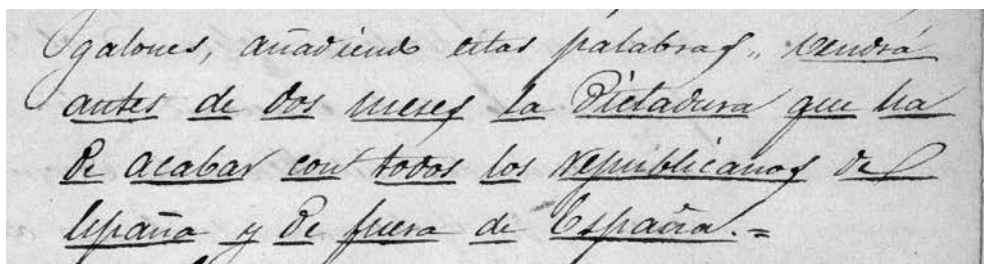 galones, añadiendo estas palabras „ vendrá
antes de dos meses la Dictadura que ha
de acabar con todos los Republicanos de
España y de fuera de España.=